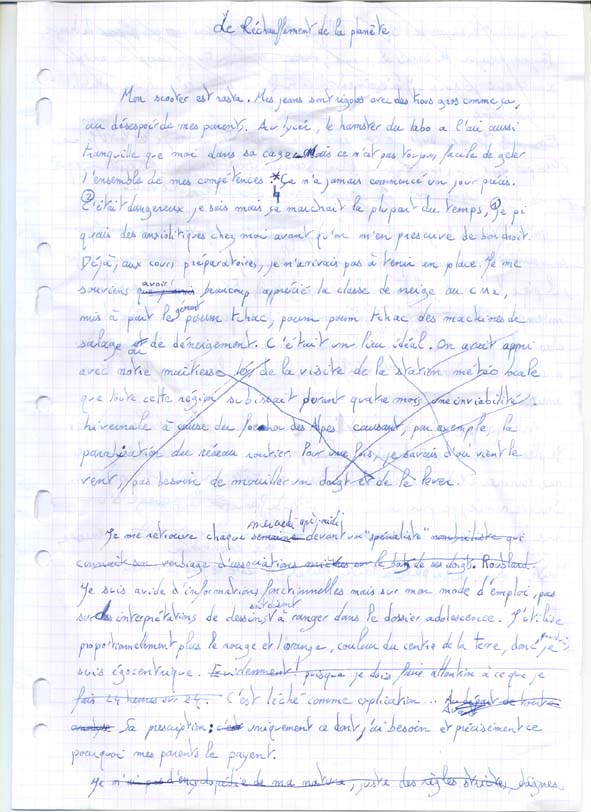 Le Réchauffement de la planète
Mon scooter est rasta. Mes jeans sont rigolos avec des trous gros comme ça,
au désespoir de mes parents. Au lycée, le hamster du labo a l'air aussi
tranquille que moi dans sa cage. Mais ce n'est pas toujours facile de gérer
l'ensemble de mes compétences. * Ça n'a jamais commencé un jour précis.
C'était dangereux, je sais mais ça marchait la plupart du temps, Je pi
quais des anxiolitiques chez moi avant qu'on m'en prescrive de bon droit.
Déjà, aux cours préparatoires, je n'arrivais pas à tenir en place. Je me
souviens avoir beaucoup apprécié la classe de neige au CM2,
mis à part le gênant poum tchac, poum poum tchac des machines de
salage ou de déneigement. C'était un lieu idéal. On avait appris
avec notre maîtresse lors de la visite de la station météo locale
que toute cette région subissait durant quatre mois une inviabilité
hivernale à cause du foehn des Alpes causant, par exemple, la
paralysation du réseau routier. Pour une fois, je savais d'où vient le
vent, pas besoin de mouiller un doigt et de le lever.
mercredi après-midi
Je me retrouve chaque semaine devant un "spécialiste" qui
verbiage d'associations sur le bout de ses doigts. Roublard.
Je suis avide d'informations fonctionnelles mais sur mon mode d'emploi, pas
sur des interprétations de dessins à ranger dans le dossier adolescence. J'utilise
proportionnellement plus le rouge et l'orange, couleur du centre de la terre, donc je
suis égocentrique. Evidemment ! puisque je dois faire attention à ce que je
fais 24 heures sur 24. C'est léché comme explication... Au départ de toute
analyse Sa prescription : c'est uniquement ce dont j'ai besoin et précisément ce
pourquoi mes parents le payent.
Je n'ai pas d'encyclopédie de ma nature, juste des règles strictes, dignes